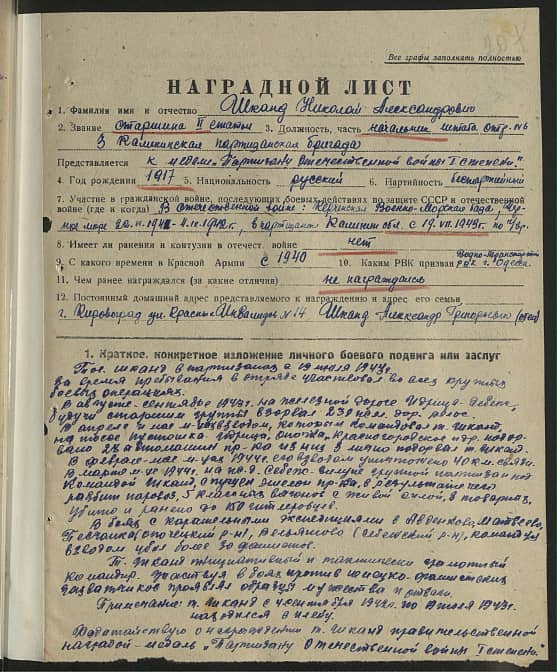 Все графы заполнять полностью
НАГРАДНОЙ ЛИСТ
1. Фамилия имя и отчество Шканд Николай Александрович
2. Звание старшина II статьи 3. Должность, часть начальник штаба отр. №6
3 Калининская партизанская бригада
Представляется к медали "Партизану Отечественной войны I степени."
4. Год рождения 1917 5. Национальность русский 6. Партийность беспартийный
7. Участие в гражданской войне, последующих боевых действиях по защите СССР и отечественной
войне (где и когда) В отечественной войне: Керченская Военно-Морская База, Чер-
ное море в партизанах Калинин обл. с 19.VII.1943г. по
8. Имеет ли ранения и контузии в отечест. войне нет
9. С какого времени в Красной Армии с 1940 10. Каким РВК призван Водно-Транспортный
РВК г. Одесса.
11. Чем ранее награждался (за какие отличия) не награждался
12. Постоянный домашний адрес представляемого к награждению и адрес его семьи
г. Кировоград ул. Красных Инвалидов №14 Шканд Александр Григорьевич (отец)
1. Краткое, конкретное изложение личного боевого подвига или заслуг
Тов. Шканд в партизанах с 19 июля 1943г.
За время пребывания в отряде участвовал во всех крупных
боевых операциях.
В августе-сентябре 1943г. на железной дороге Идрица-Себеж,
будучи старшим группы взорвал 23 дор. рельс.
В апреле и мае м-цах взводом, которым командовал т. Шканд,
на шоссе Пустошка-Идрица, Опочка, Красногородское и др. подор-
вано 28 автомашин пр-ка из них лично подорвал т. Шканд.
В феврале-мае м-цах 1944г. его взводом уничтожено 40 км. связи.
В марте м-це 1944г. на ж.д. Себеж- группой партизан под
командой Шканд, спущен эшелон пр-ка, в результате чего
разбит паровоз, 5 классных вагонов с живой силой, товарных.
Убито и ранено до 150 гитлеровцев.
В боях с карательными экспедициями в Авденково, Матвеево,
Песчанка (Опочецкий р-н), (Себежский р-н), командуя
взводом убил более 30 фашистов.
Т. Шканд инициативный и тактически грамотный
командир. Участвуя в боях против немецко-фашистских
захватчиков проявлял образцы мужества и отваги.
Примечание: т. Шканд с 4 сентября 1942г. по июля 1943г.
находился в плену.
Ходатайствую о награждении т. Шканд правительственной
наградой - медаль "Партизану Отечественной войны I степени."